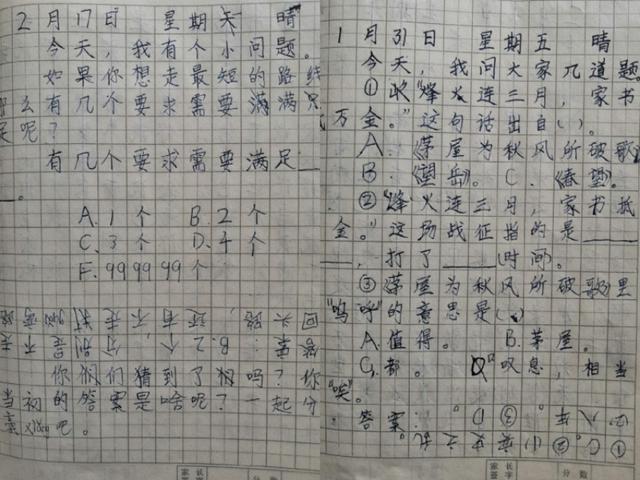 2月17日 星期天 晴
今天，我有个小问题。
如果你想走最短的路线
么有几个要求需要满满足
呢？
有几个要求需要满足
。
A. 1个 B. 2个
C. 3个 D. 4个
F. 99 99 99个
回头路
答案：B.2个，还有，不走
是别
你们猜到了吗？你
当初的答案是啥呢？一起分
吧。
家长签字 分数
1月31日 星期五 晴
今天，我问大家几道题
①"烽火连三月，家书
万金。"这句话出自( )。
A.《茅屋为秋风所破歌》
B.《望岳》。 C.《春望》。
②"烽火连三月，家书抵
金。"这场战征指的是
，打了 (时间)。
③《茅屋为秋风所破歌》里
"呜呼"的意思是( )
A.值得。 B.茅屋。
C.都。 D"叹息，相当
"唉"。
答案：
①C。②(1)安史之乱。
(2)八年。③D。
家长签字 分数